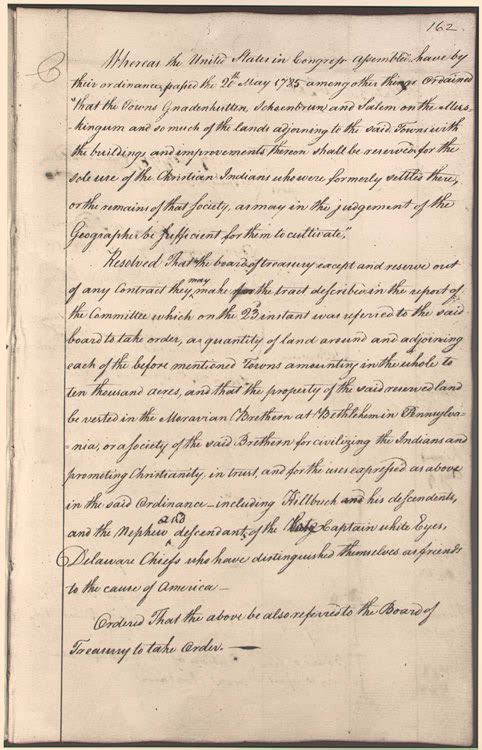 162.
Whereas the United States in Congress assembled have by
their ordinance passed the 20th May 1785 among other things Ordained
"that the Towns Gnadenhutten, Schoenbrun and Salem on the Mus-
kingum and so much of the lands adjoining to the said Towns with
the buildings and improvements thereon shall be reserved for the
sole use of the Christian Indians who were formerly settled there,
or the remains of that society, as may in the judgement of the
Geographer be sufficient for them to cultivate",
Resolved That the board of treasury except and reserve out
of any Contract they may make for the tract described in the report of
the Committee which on the 23d instant was referred to the said
board to take order, a quantity of land around and adjoining
each of the before mentioned Towns amounting in the whole to
ten thousand acres, and that the property of the said reserved land
be vested in the Moravian Brethern at Bethlehem in Pennsylva-
=nia, or a society of the said Brethern for civilizing the Indians and
promoting Christianity, in trust, and for the uses expressed as above
in the said Ordinance - including Killbuck and his descendents,
and the Nephew and descendants of the late Captain white Eyes,
Delaware Chiefs who have distinguished themselves as friends
to the cause of America -
Ordered That the above be also referred to the Board of
Treasury to take Order. —